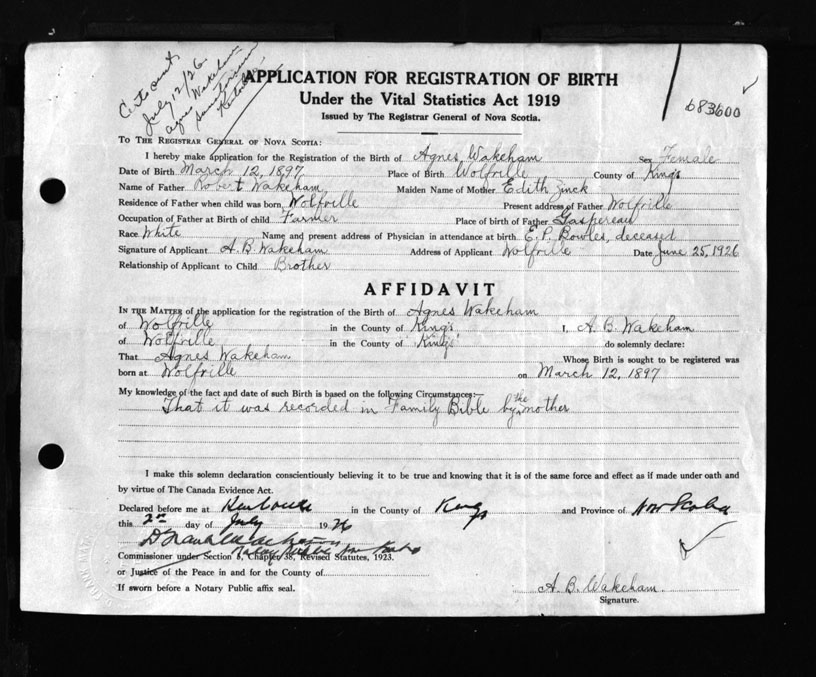 July 12/26
Agnes Wakeham
683600
APPLICATION FOR REGISTRATION OF BIRTH
Under the Vital Statistics Act 1919
Issued by The Registrar General of Nova Scotia.
TO THE REGISTRAR GENERAL OF NOVA SCOTIA:
I hereby make application for the Registration of the Birth of Agnes Wakeham Sex Female
Date of Birth March 12, 1897 Place of Birth Wolfville County of Kings
Name of Father Robert Wakeham Maiden Name of Mother Edith Zinck
Residence of Father when child was born, Wolfville Present address of Father Wolfville
Occupation of Father at Birth of child Farmer Place of birth of Father Gaspereau
Race White Name and present address of Physician in attendance at birth E. P. Bowles, deceased
Signature of Applicant A. B. Wakeham Address of Applicant Wolfville Date June 25, 1926
Relationship of Applicant to Child Brother
AFFIDAVIT
IN THE MATTER of the application for the registration of the Birth of Agnes Wakeham
of Wolfville in the County of King's I, A. B. Wakeham
of Wolfville in the County of King's do solemnly declare:
That Agnes Wakeham Whose Birth is sought to be registered was
born at Wolfville on March 12, 1897
My knowledge of the fact and date of such Birth is based on the following Circumstances:—
That it was recorded in Family Bible by the mother
I make this solemn declaration conscientiously believing it to be true and knowing that it is of the same force and effect as if made under oath and
by virtue of The Canada Evidence Act.
Declared before me at in the County of Kings and Province of Nova Scotia
this 2nd day of July 1926
Commissioner under Section 8, Chapter 38, Revised Statutes, 1923.
or Justice of the Peace in and for the County of
If sworn before a Notary Public affix seal.
A. B. Wakeham
Signature.